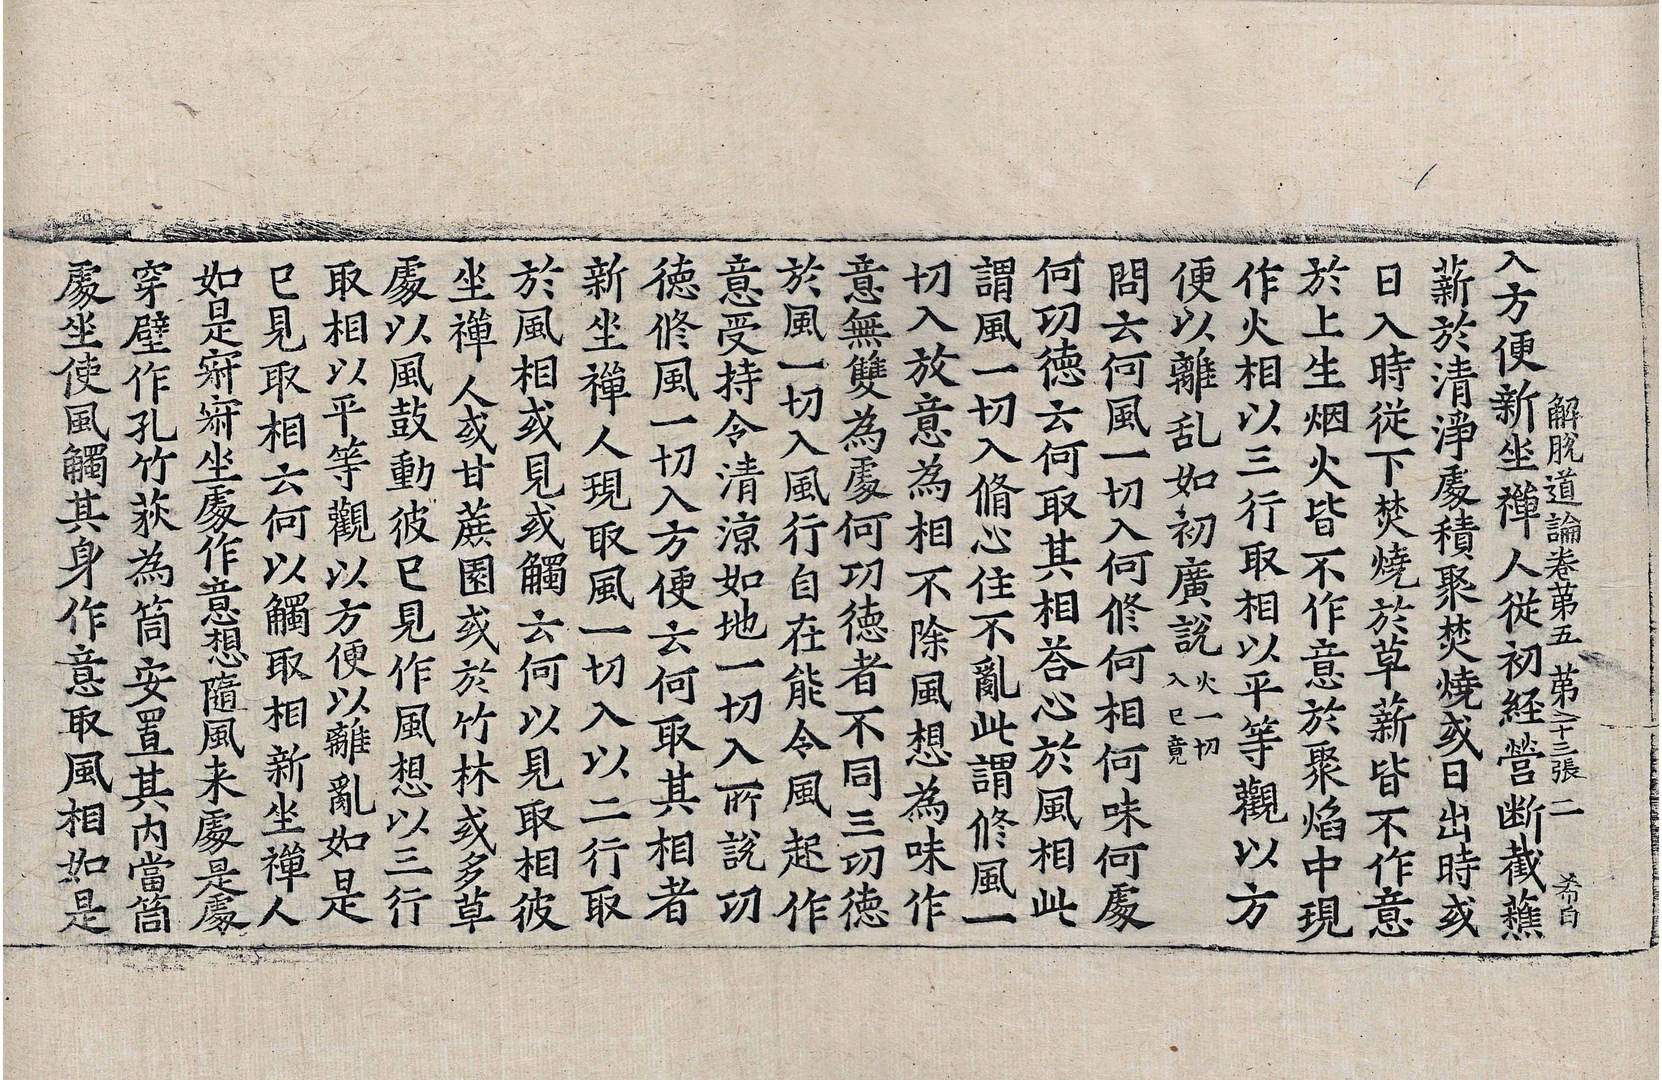 解脫道論卷苐五 苐十三張 二 希白
入方便新坐禪人從初経營断截藮
薪於清淨處積聚焚燒或日出時或
日入時從下焚燒於草薪皆不作意
於上生烟火皆不作意於聚焰中現
作火相以三行取相以平等觀以方
便以離乱如初廣說 火一切
入已竟
問云何風一切入何修何相何味何處
何功德云何取其相荅心於風相此
謂風一切入脩心住不亂此謂修風一
切入放意為相不除風想為味作
意無雙為處何功德者不同三功德
於風一切入風行自在能令風起作
意受持令清涼如地一切入所說功
德修風一切入方便云何取其相者
新坐禪人現取風一切入以二行取
於風相或見或觸云何以見取相彼
坐禪人或甘蔗園或於竹林或多草
處以風鼓動彼已見作風想以三行
取相以平等觀以方便以離亂如是
已見取相云何以觸取相新坐禪人
如是寂寂坐處作意想隨風来處是處
穿壁作孔竹荻為筒安置其內當筒
處坐使風觸其身作意取風相如是